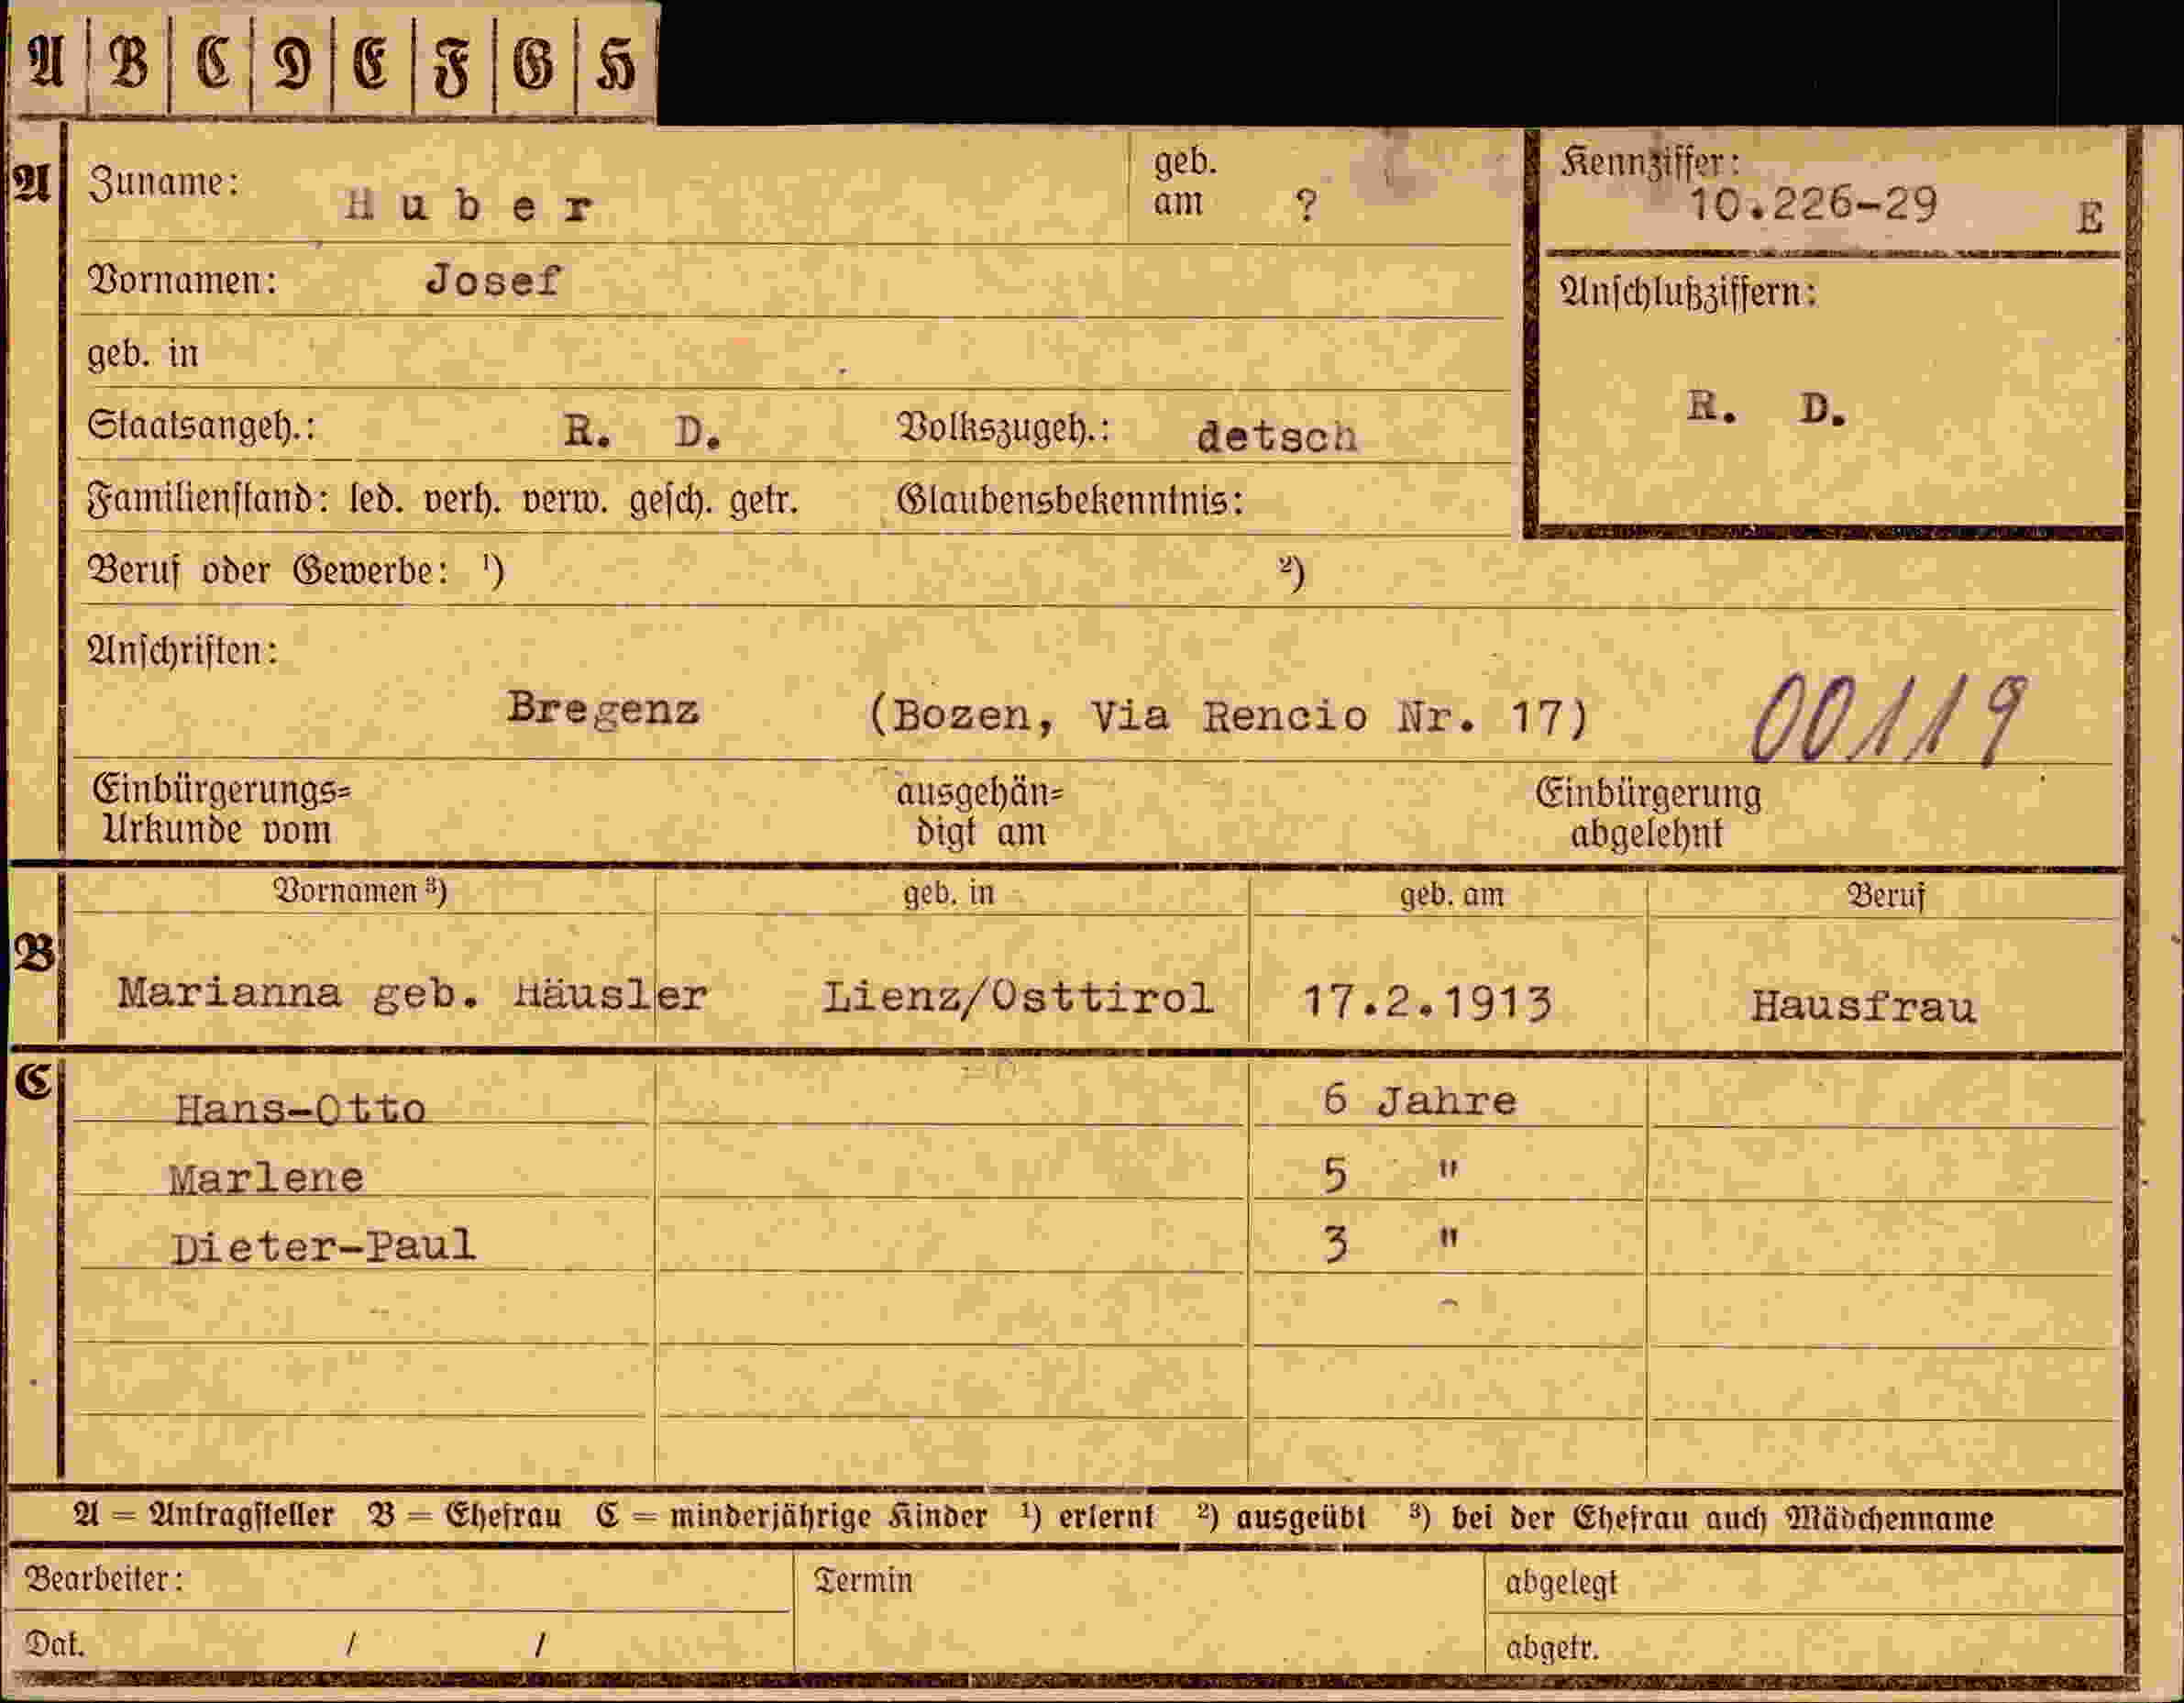 A B C D E F G H
A Zuname: Huber geb. am ? Kennziffer: 10.226-29 E
Vornamen: Josef Anschlußziffern:
geb. in
Staatsangeh.: R. D. Volkszugeh.: detsch R. D.
Familienstand: led. verh. verw. gesch. getr. Glaubensbekenntnis:
Beruf oder Gewerbe: ¹) ²)
Anschriften:
Bregenz (Bozen, Via Rencio Nr. 17) 00119
Einbürgerungs= ausgehän= Einbürgerung
Urkunde vom digt am abgelehnt
Vornamen ³) geb. in geb. am Beruf
B Marianna geb. Häusler Lienz/Osttirol 17.2.1913 Hausfrau
C Hans-Otto 6 Jahre
Marlene 5 "
Dieter-Paul 3 "
A = Antragsteller B = Ehefrau C = minderjährige Kinder ¹) erlernt ²) ausgeübt ³) bei der Ehefrau auch Mädchenname
Bearbeiter: Termin abgelegt
Dat. / / abgetr.